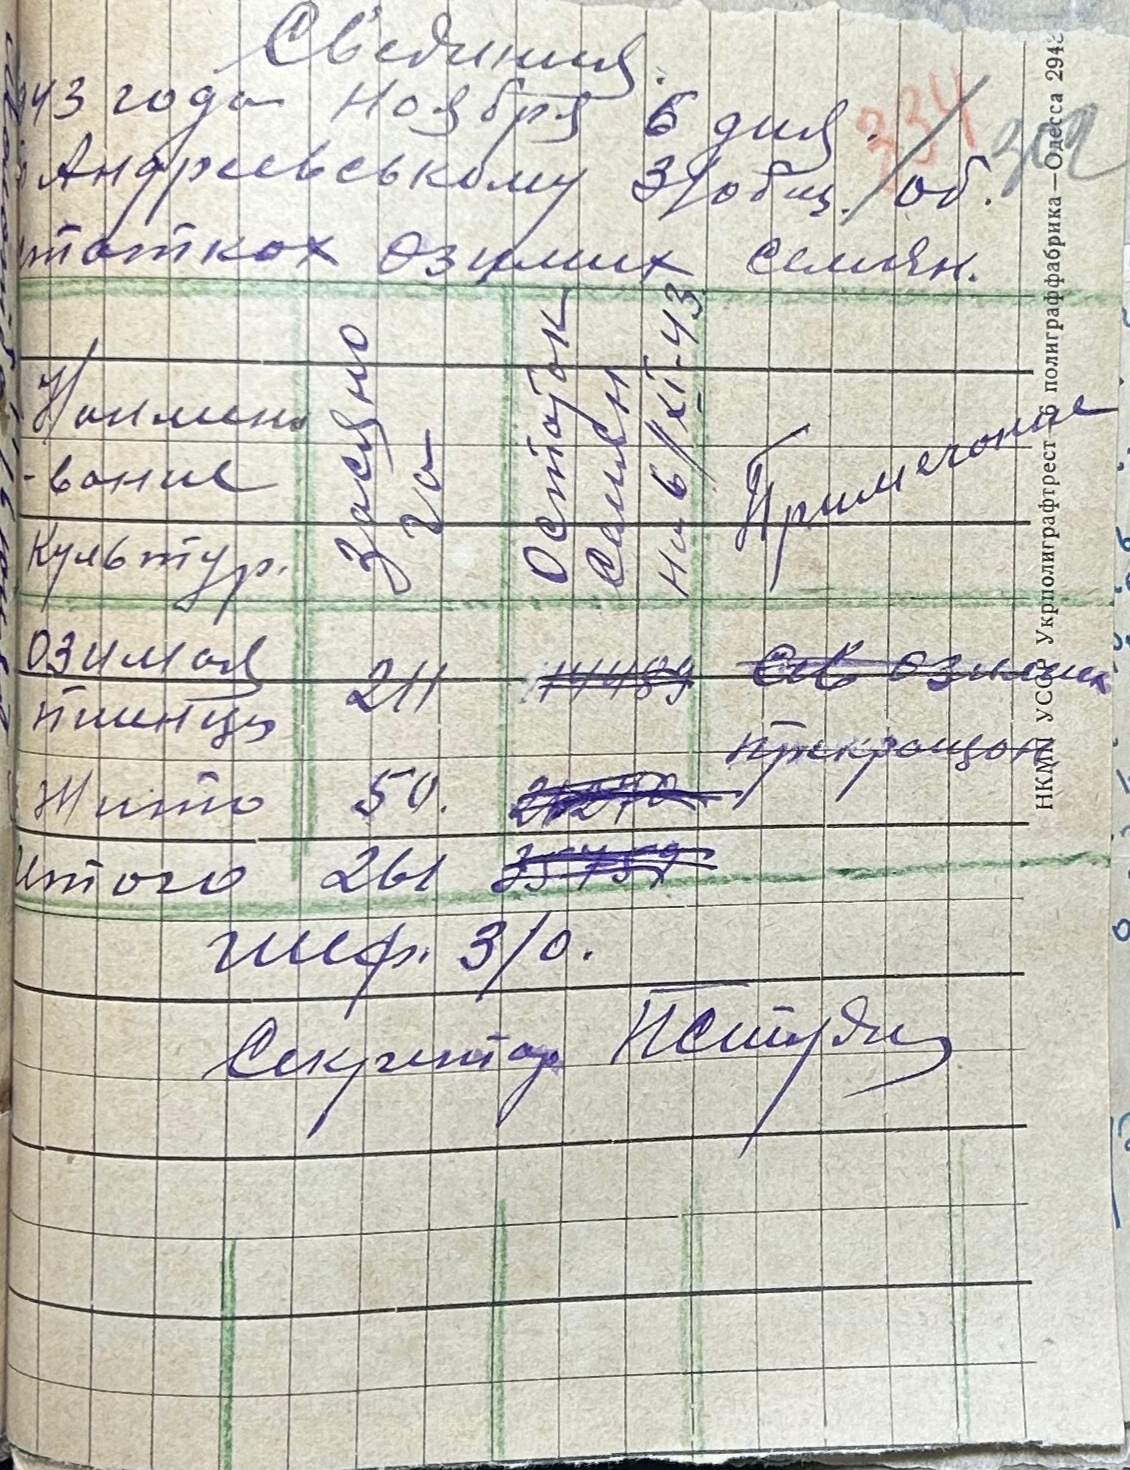 Свединия.
43 года Ноября 6 дня.
334
302
Андреевському З/общ. об.
статках озимих семян.
Наимено
-вание
Культур.
Засеяно
га
Остаток
Семян
На 6/XI-43
Примечание
озимая
пшеница
211
14489
Сев озимих
прекращон
Жито
50.
Итого 261
35759
Шеф. З/О.
Секретар
НКМП УССР Укрполиграфтрест 6 полиграффабрика — Одесса 294